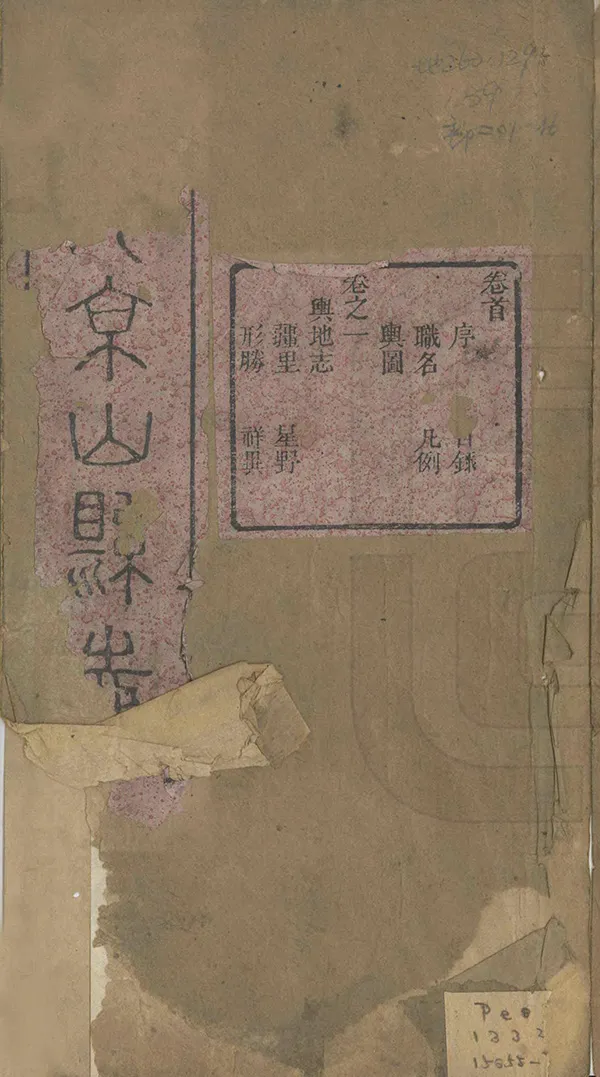 卷首
序 目錄
職名 凡例
輿圖
卷之一
輿地志
疆里 星野
形勝 祥異
京山縣志
Peo
1332
15855-